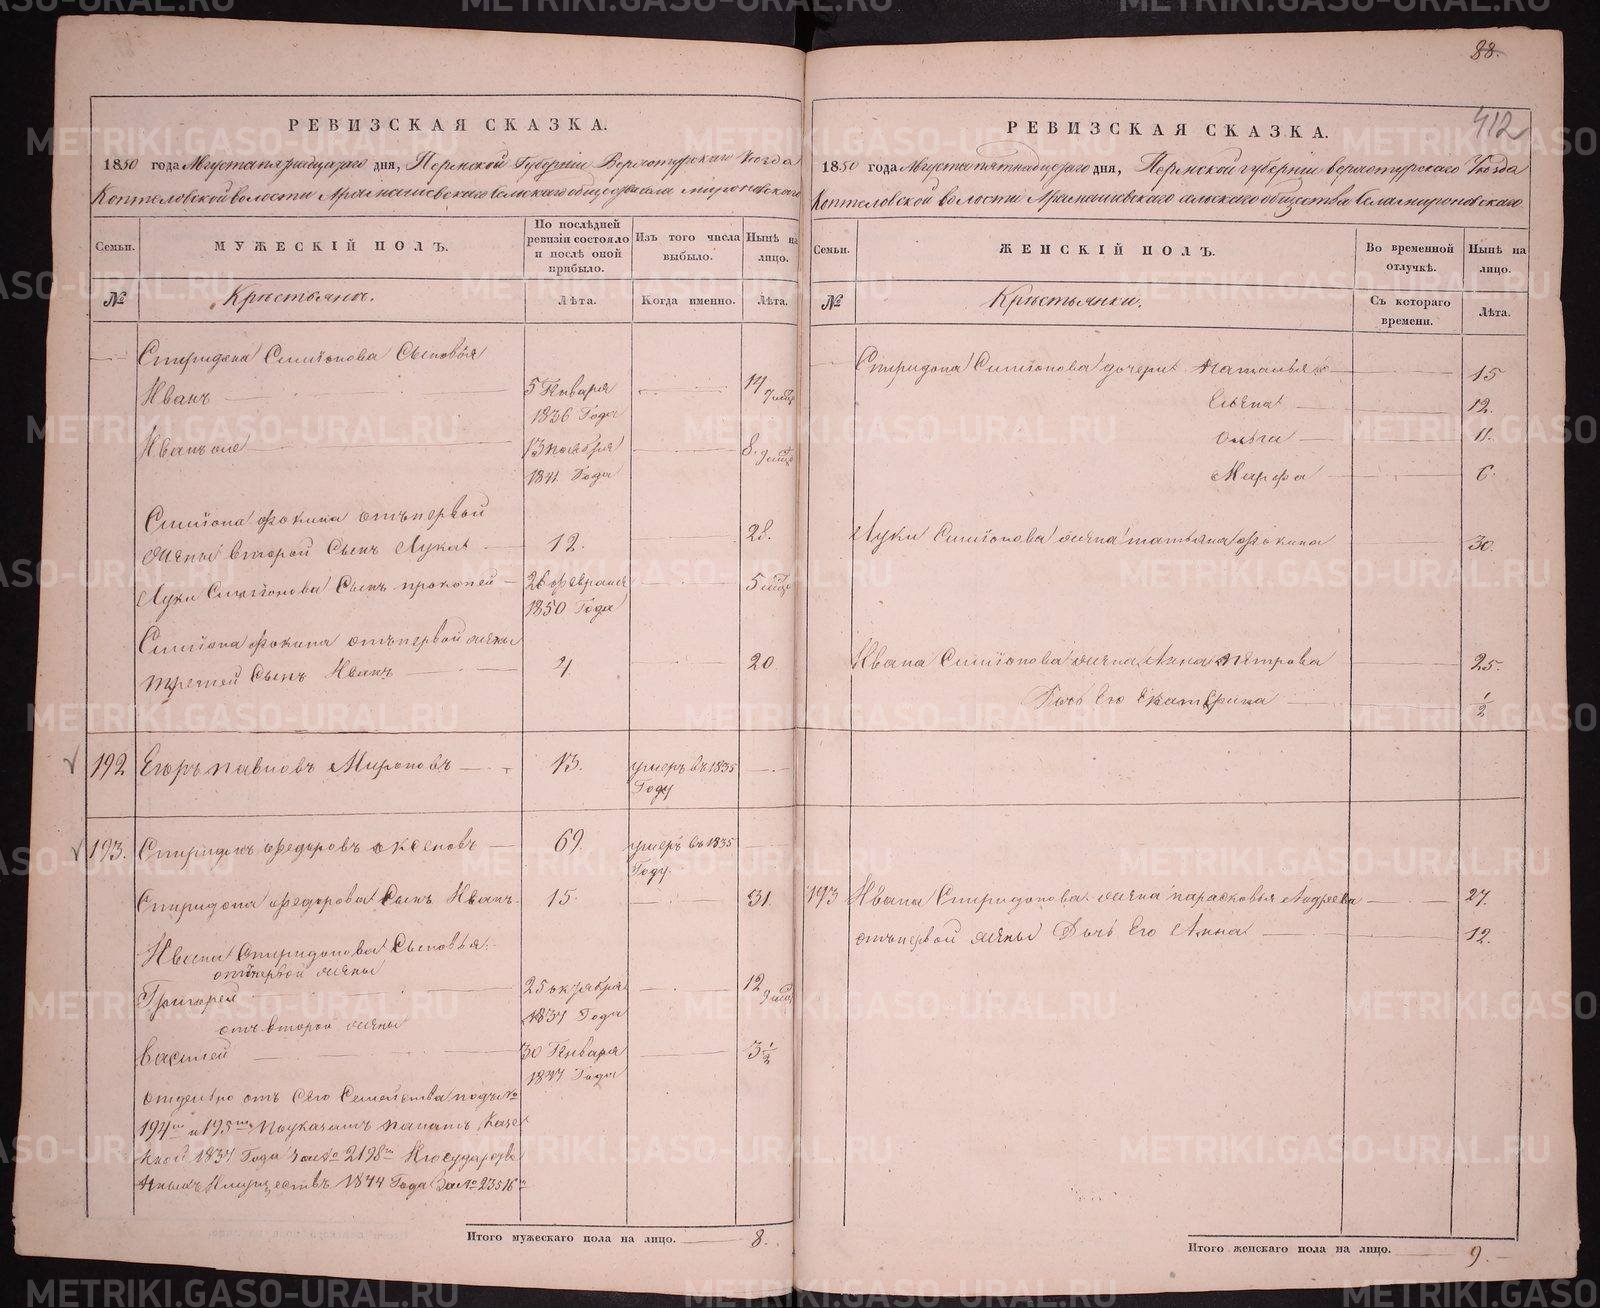 РЕВИЗСКАЯ СКАЗКА.
1850 года Августа пятнадцатаго дня, Пермской Губерніи Верхотурскаго Уѣзда
Коптеловской волости Арамашевскаго сельскаго общества села мироновскаго
Семьи.
МУЖЕСКІЙ ПОЛЪ.
По послѣдней ревизіи состояло и послѣ оной прибыло.
Изъ того числа выбыло.
Нынѣ на лицо.
№
Крестьяне.
Лѣта.
Когда именно.
Лѣта.
Спиридона Симіонова Сыновья
Иванъ 5 Января 14 7 мѣс
1836 Года
Иванъ оле 13 ноября 8. 9 мѣс
1841 Года
Симіона фокина отъ первой
жены второй Сынъ Лука 12. 28.
Луки Симіонова Сынъ прокопей 26 февраля 5 мѣс
1850 Года
Симіона фокина отъ первой жены
третей Сынъ Иванъ 4 20
192 Егоръ павловъ Мироновъ 13. умеръ въ 1835
Году
193. Спиридонъ Федоровъ Аксеновъ 69. умеръ въ 1835
Году.
Спиридона Федорова Сынъ Иванъ 15. 31.
Ивана Спиридонова Сыновья:
отъ первой жены
Григорей 25 октября 12 9 мѣс
1837 Года
отъ второй жены
Василей 30 Января 3 1/2
1847 Года
отъ Сего Семейства подъ №
194 и 195 по указамъ палатъ Казен
ной 1837 Года за № 2198 и государстве
нныхъ Имуществъ 1844 Года За № 23516
Итого мужескаго пола на лицо. 8.
88.
412
РЕВИЗСКАЯ СКАЗКА.
1850 года Августа пятнадцатаго дня, Пермской губерніи верхотурскаго Уѣзда
Коптеловской волости Арамашевскаго сельскаго общества села мироновскаго
Семьи.
ЖЕНСКІЙ ПОЛЪ.
Во временной отлучкѣ.
Нынѣ на лицо.
№
Крестьянки.
Съ котораго времени.
Лѣта.
Спиридона Симіонова дочери Наталья 15
Елена 12.
Ольга 11.
Марфа 6.
Луки Симіонова жена татьяна фокина 30.
Ивана Симіонова жена Анна петрова 25.
Дочь Его Екатерина 1/2
193 Ивана Спиридонова жена парасковья Андреева 27.
отъ первой жены Дочь Его Анна 12.
Итого женскаго пола на лицо. 9.
METRIKI.GASO-URAL.RU